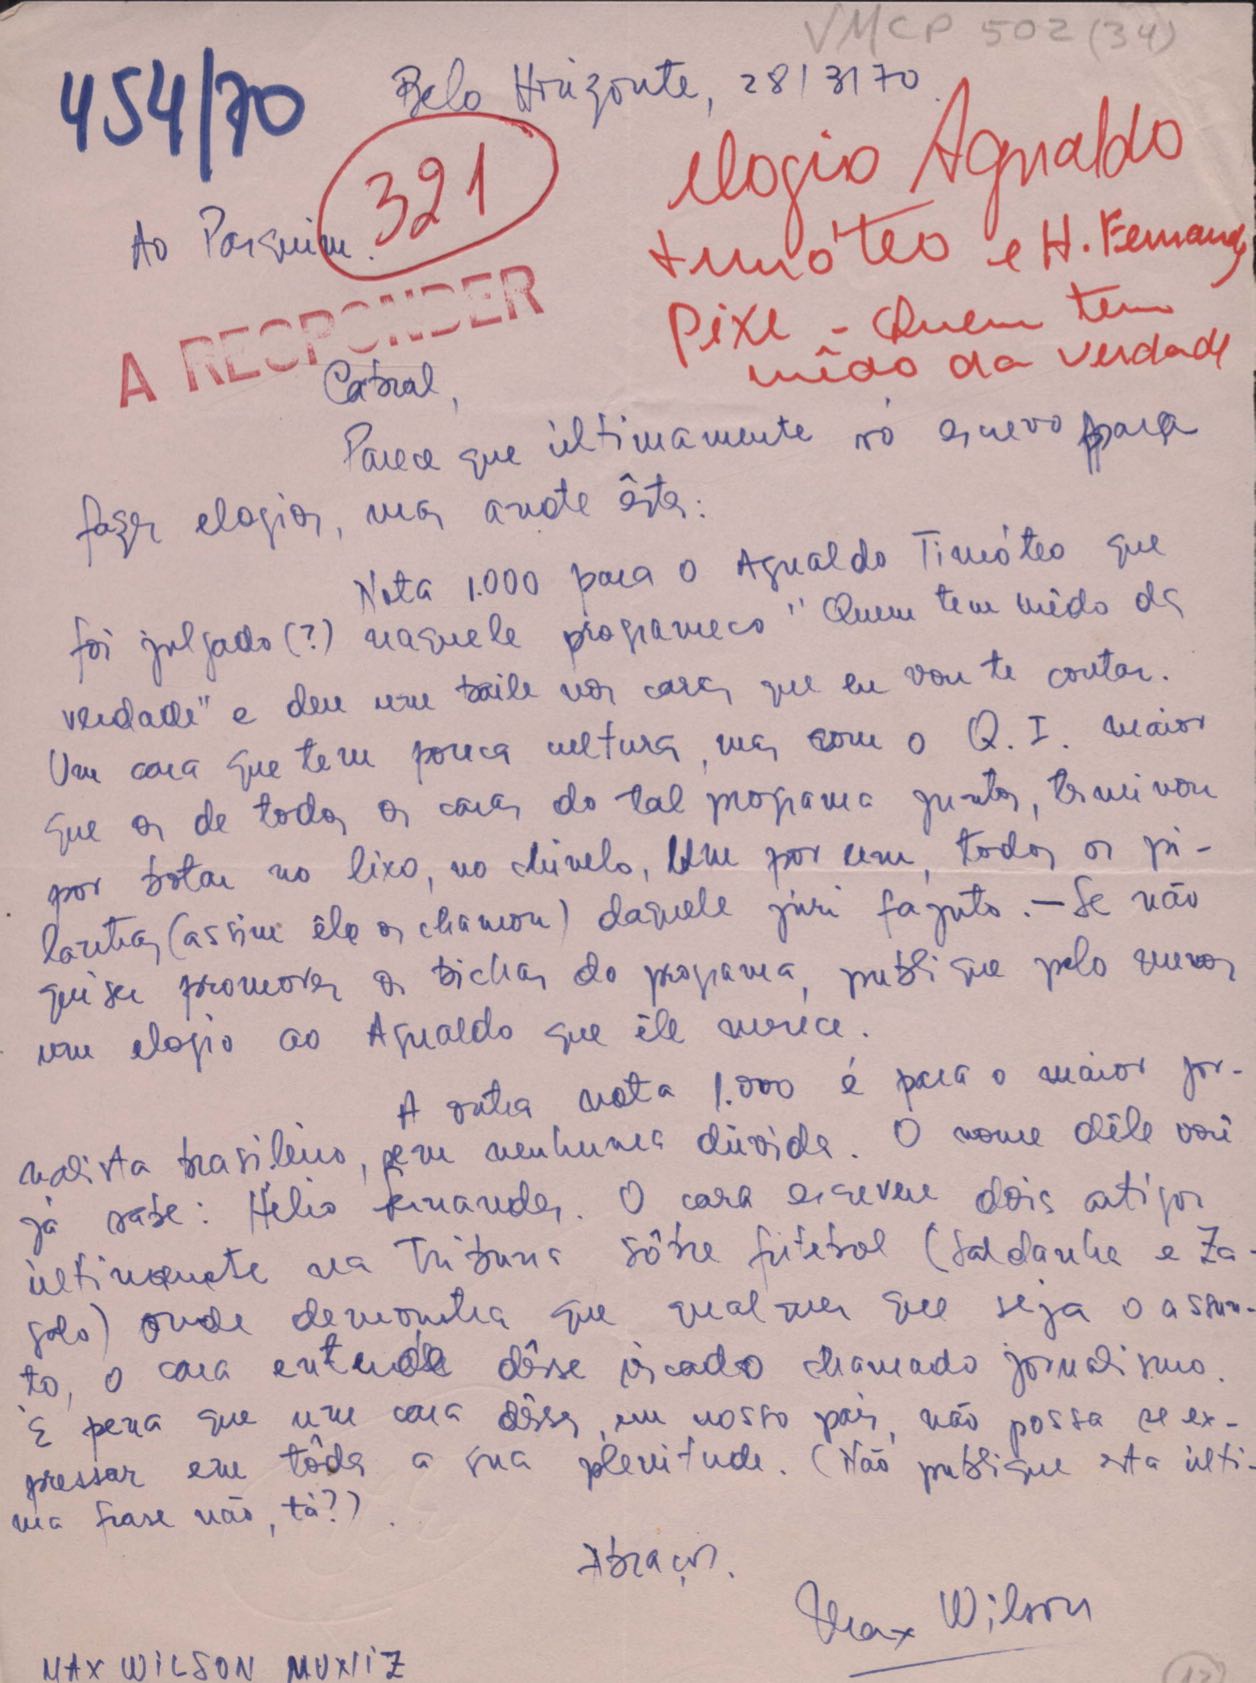 VMCP 502 (34)
454/70
Belo Horizonte, 28/3/70.
321
elogio Agnaldo
timóteo e H. Fernand
Pixe - Quem tem
mêdo da verdade
Ao Pasquim.
A RESPONDER
Cabral,
Parece que ùltimamente só escrevo para
fazer elogios, mas anote êstes:
Nota 1.000 para o Agnaldo Timóteo que
foi julgado (?) naquele programeco "Quem tem mêdo da
verdade" e deu um baile nos caras que eu vou te contar.
Um cara que tem pouca cultura, mas com o Q.I. maior
que os de todos os caras do tal programa juntos, terminou
por botar no lixo, no chinelo, um por um, todos os pi-
lantras (assim êle os chamou) daquele júri fajuto. - Se não
quiser promover os bichas do programa, publique pelo menos
um elogio ao Agnaldo que êle merece.
A outra nota 1.000 é para o maior jor-
nalista brasileiro, sem nenhuma dúvida. O nome dêle você
já sabe: Hélio Fernandes. O cara escreveu dois artigos
ùltimamente na Tribuna sôbre futebol (Saldanha e Za-
galo) onde demonstra que qualquer que seja o assun-
to, o cara entende dêsse riscado chamado jornalismo.
É pena que um cara dêsses, em nosso país, não possa se ex-
pressar em tôda a sua plenitude. (Não publique esta últi-
ma frase não, tá?).
Abraços.
Max Wilson
MAX WILSON MUNIZ